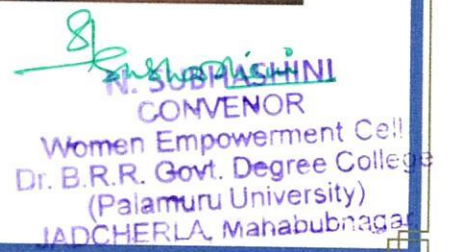 N. SUBHASHINI
CONVENOR
Women Empowerment Cell
Dr. B.R.R. Govt. Degree College
(Palamuru University)
JADCHERLA, Mahabubnagar